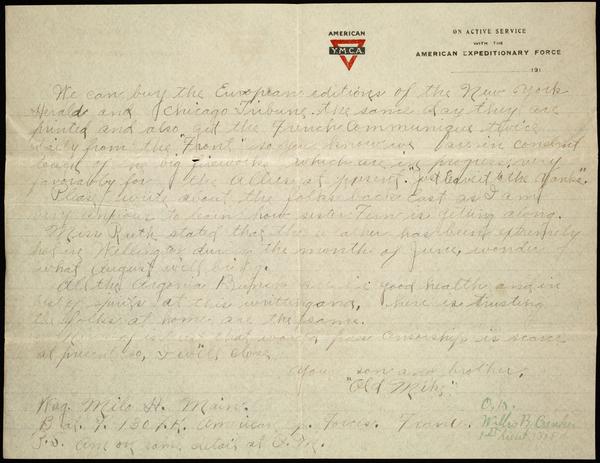 AMERICAN
Y.M.C.A.
ON ACTIVE SERVICE
WITH THE
AMERICAN EXPEDITIONARY FORCE
191
We can buy the European editions of the New York
Herald and Chicago Tribune the same day they are
printed and also get the French Communique twice
daily from the "Front" so you know we are in constant
touch of the big fireworks which are in progress very
favorably for the Allies at present.
Please write about the folks back East as I am
very anxious to learn how sister Fern is getting along.
Miss Ruth stated that the weather has been extremely
hot in Wellington during the month of June, wonder
what August will bring.
All the Argonia Bunch are in good health and in
best of spirits at this writing and, here is trusting
the folks at home are the same.
news that would pass censorship is scarce
at present so, I will close
Your son and brother,
"Old Mike"
Wag. Milo H. Main.
Bat. F. 130 F.A. American Ex. Forces. France.
P.S. Am on same detail at Q.M.
O.K.
1st Lieut 130 F.A.